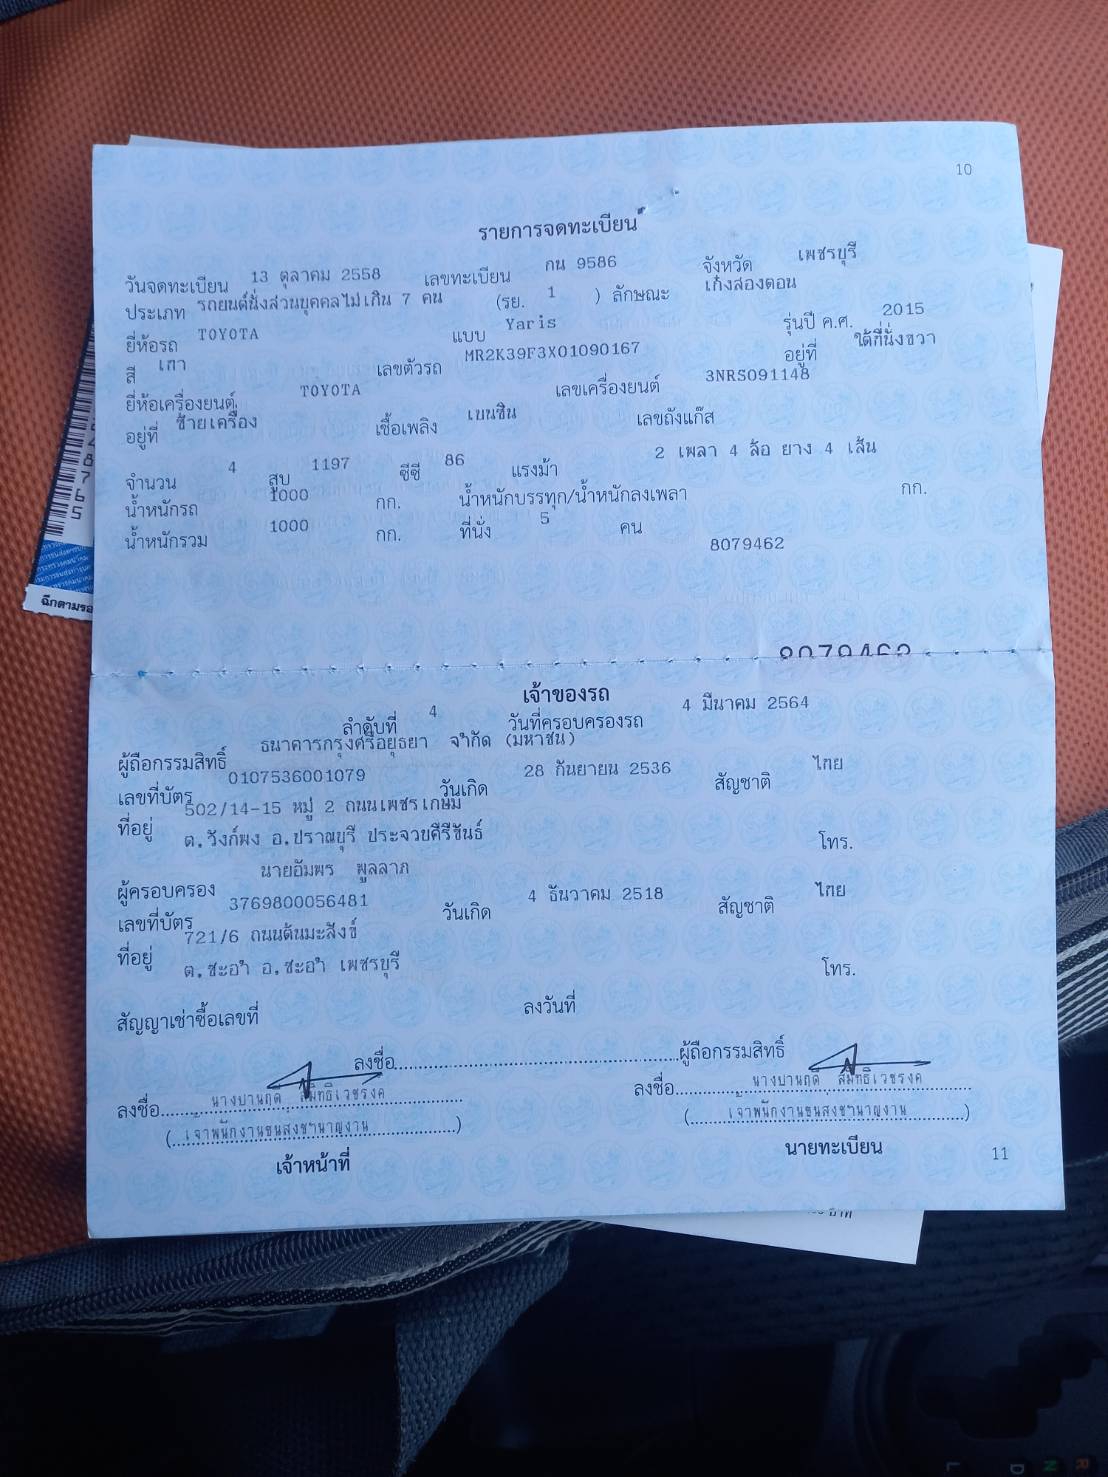 10
รายการจดทะเบียน
วันจดทะเบียน 13 ตุลาคม 2558 เลขทะเบียน กน 9586 จังหวัด เพชรบุรี
ประเภท รถยนต์นั่งส่วนบุคคลไม่เกิน 7 คน (รย. 1 ) ลักษณะ เก๋งสองตอน
ยี่ห้อรถ TOYOTA แบบ Yaris รุ่นปี ค.ศ. 2015
สี เทา เลขตัวรถ MR2K39F3X01090167 อยู่ที่ ใต้ที่นั่งขวา
ยี่ห้อเครื่องยนต์ TOYOTA เลขเครื่องยนต์ 3NRS091148
อยู่ที่ ซ้ายเครื่อง เชื้อเพลิง เบนซิน เลขถังแก๊ส
จำนวน 4 สูบ 1197 ซีซี 86 แรงม้า 2 เพลา 4 ล้อ ยาง 4 เส้น
น้ำหนักรถ 1000 กก. น้ำหนักบรรทุก/น้ำหนักลงเพลา กก.
น้ำหนักรวม 1000 กก. ที่นั่ง 5 คน
8079462
8079462
เจ้าของรถ
ลำดับที่ 4 วันที่ครอบครองรถ 4 มีนาคม 2564
ผู้ถือกรรมสิทธิ์ ธนาคารกรุงศรีอยุธยา จำกัด (มหาชน)
เลขที่บัตร 0107536001079 วันเกิด 28 กันยายน 2536 สัญชาติ ไทย
ที่อยู่ 502/14-15 หมู่ 2 ถนนเพชรเกษม
ต.วังก์พง อ.ปราณบุรี ประจวบคีรีขันธ์ โทร.
ผู้ครอบครอง นายอัมพร พูลลาภ
เลขที่บัตร 3769800056481 วันเกิด 4 ธันวาคม 2518 สัญชาติ ไทย
ที่อยู่ 721/6 ถนนต้นมะสังข์
ต.ชะอำ อ.ชะอำ เพชรบุรี โทร.
สัญญาเช่าซื้อเลขที่ ลงวันที่
ลงชื่อ ผู้ถือกรรมสิทธิ์
ลงชื่อ นางบานฤดี สมิทธิเวชรงค์ ลงชื่อ นางบานฤดี สมิทธิเวชรงค์
(เจ้าพนักงานขนส่งชำนาญงาน) (เจ้าพนักงานขนส่งชำนาญงาน)
เจ้าหน้าที่ นายทะเบียน
11
ฉีกตามรอ